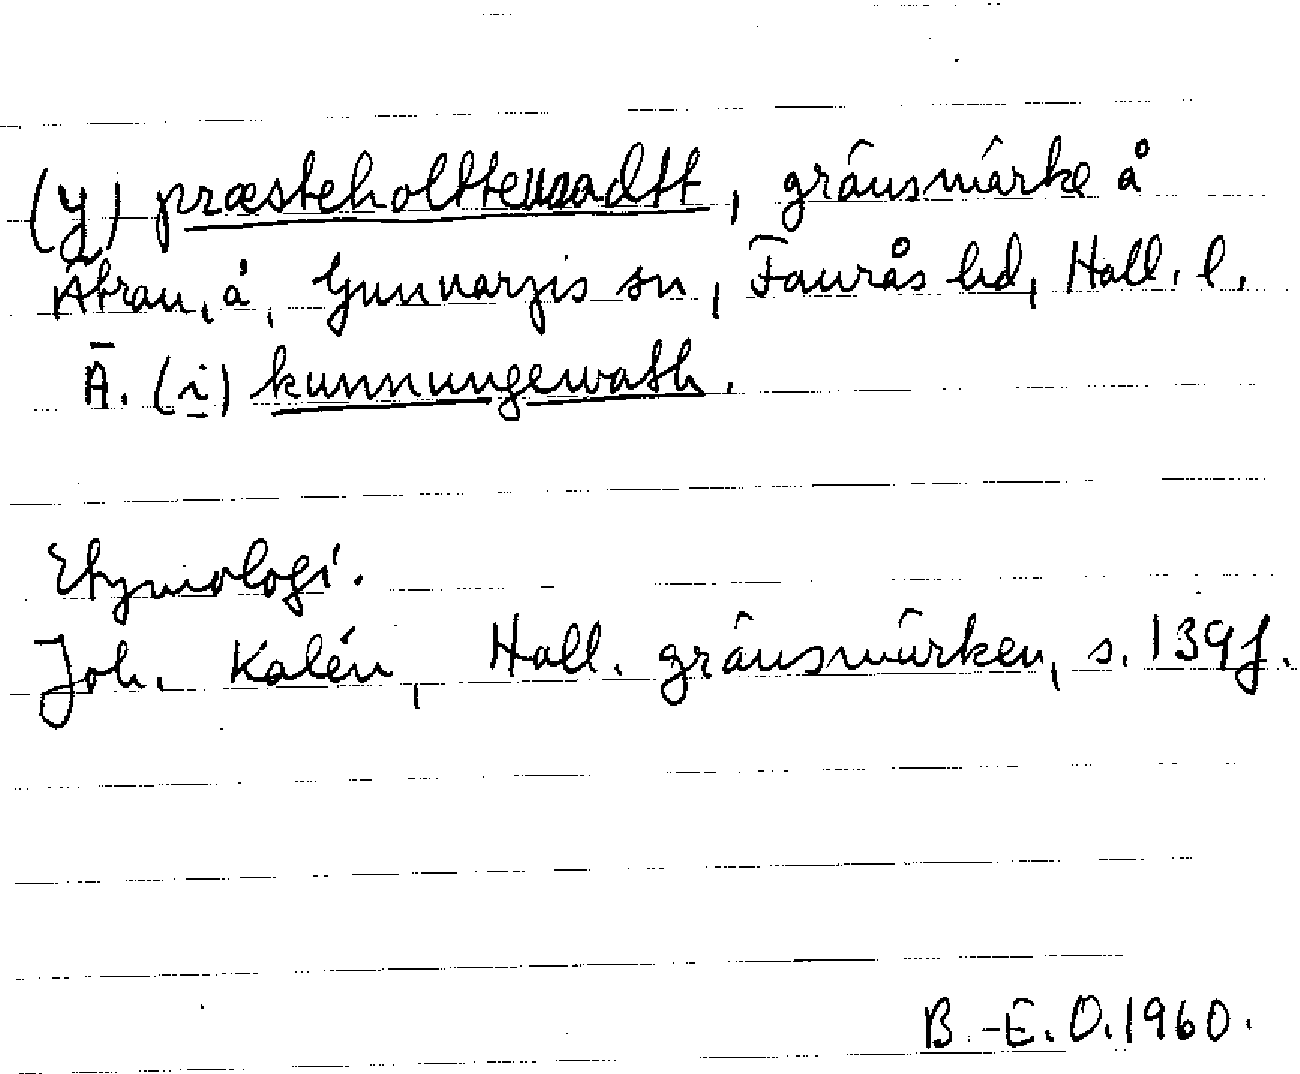 (y) præsteholttewadtt, gränsmärke å
Ätran, å, Gunnarpis sn, Faurås hd, Hall. l.
Ä. (i) kunnungewath.
Etymologi.
Joh. Kalén, Hall. gränsmärken, s. 139f.
B.-E.O. 1960.